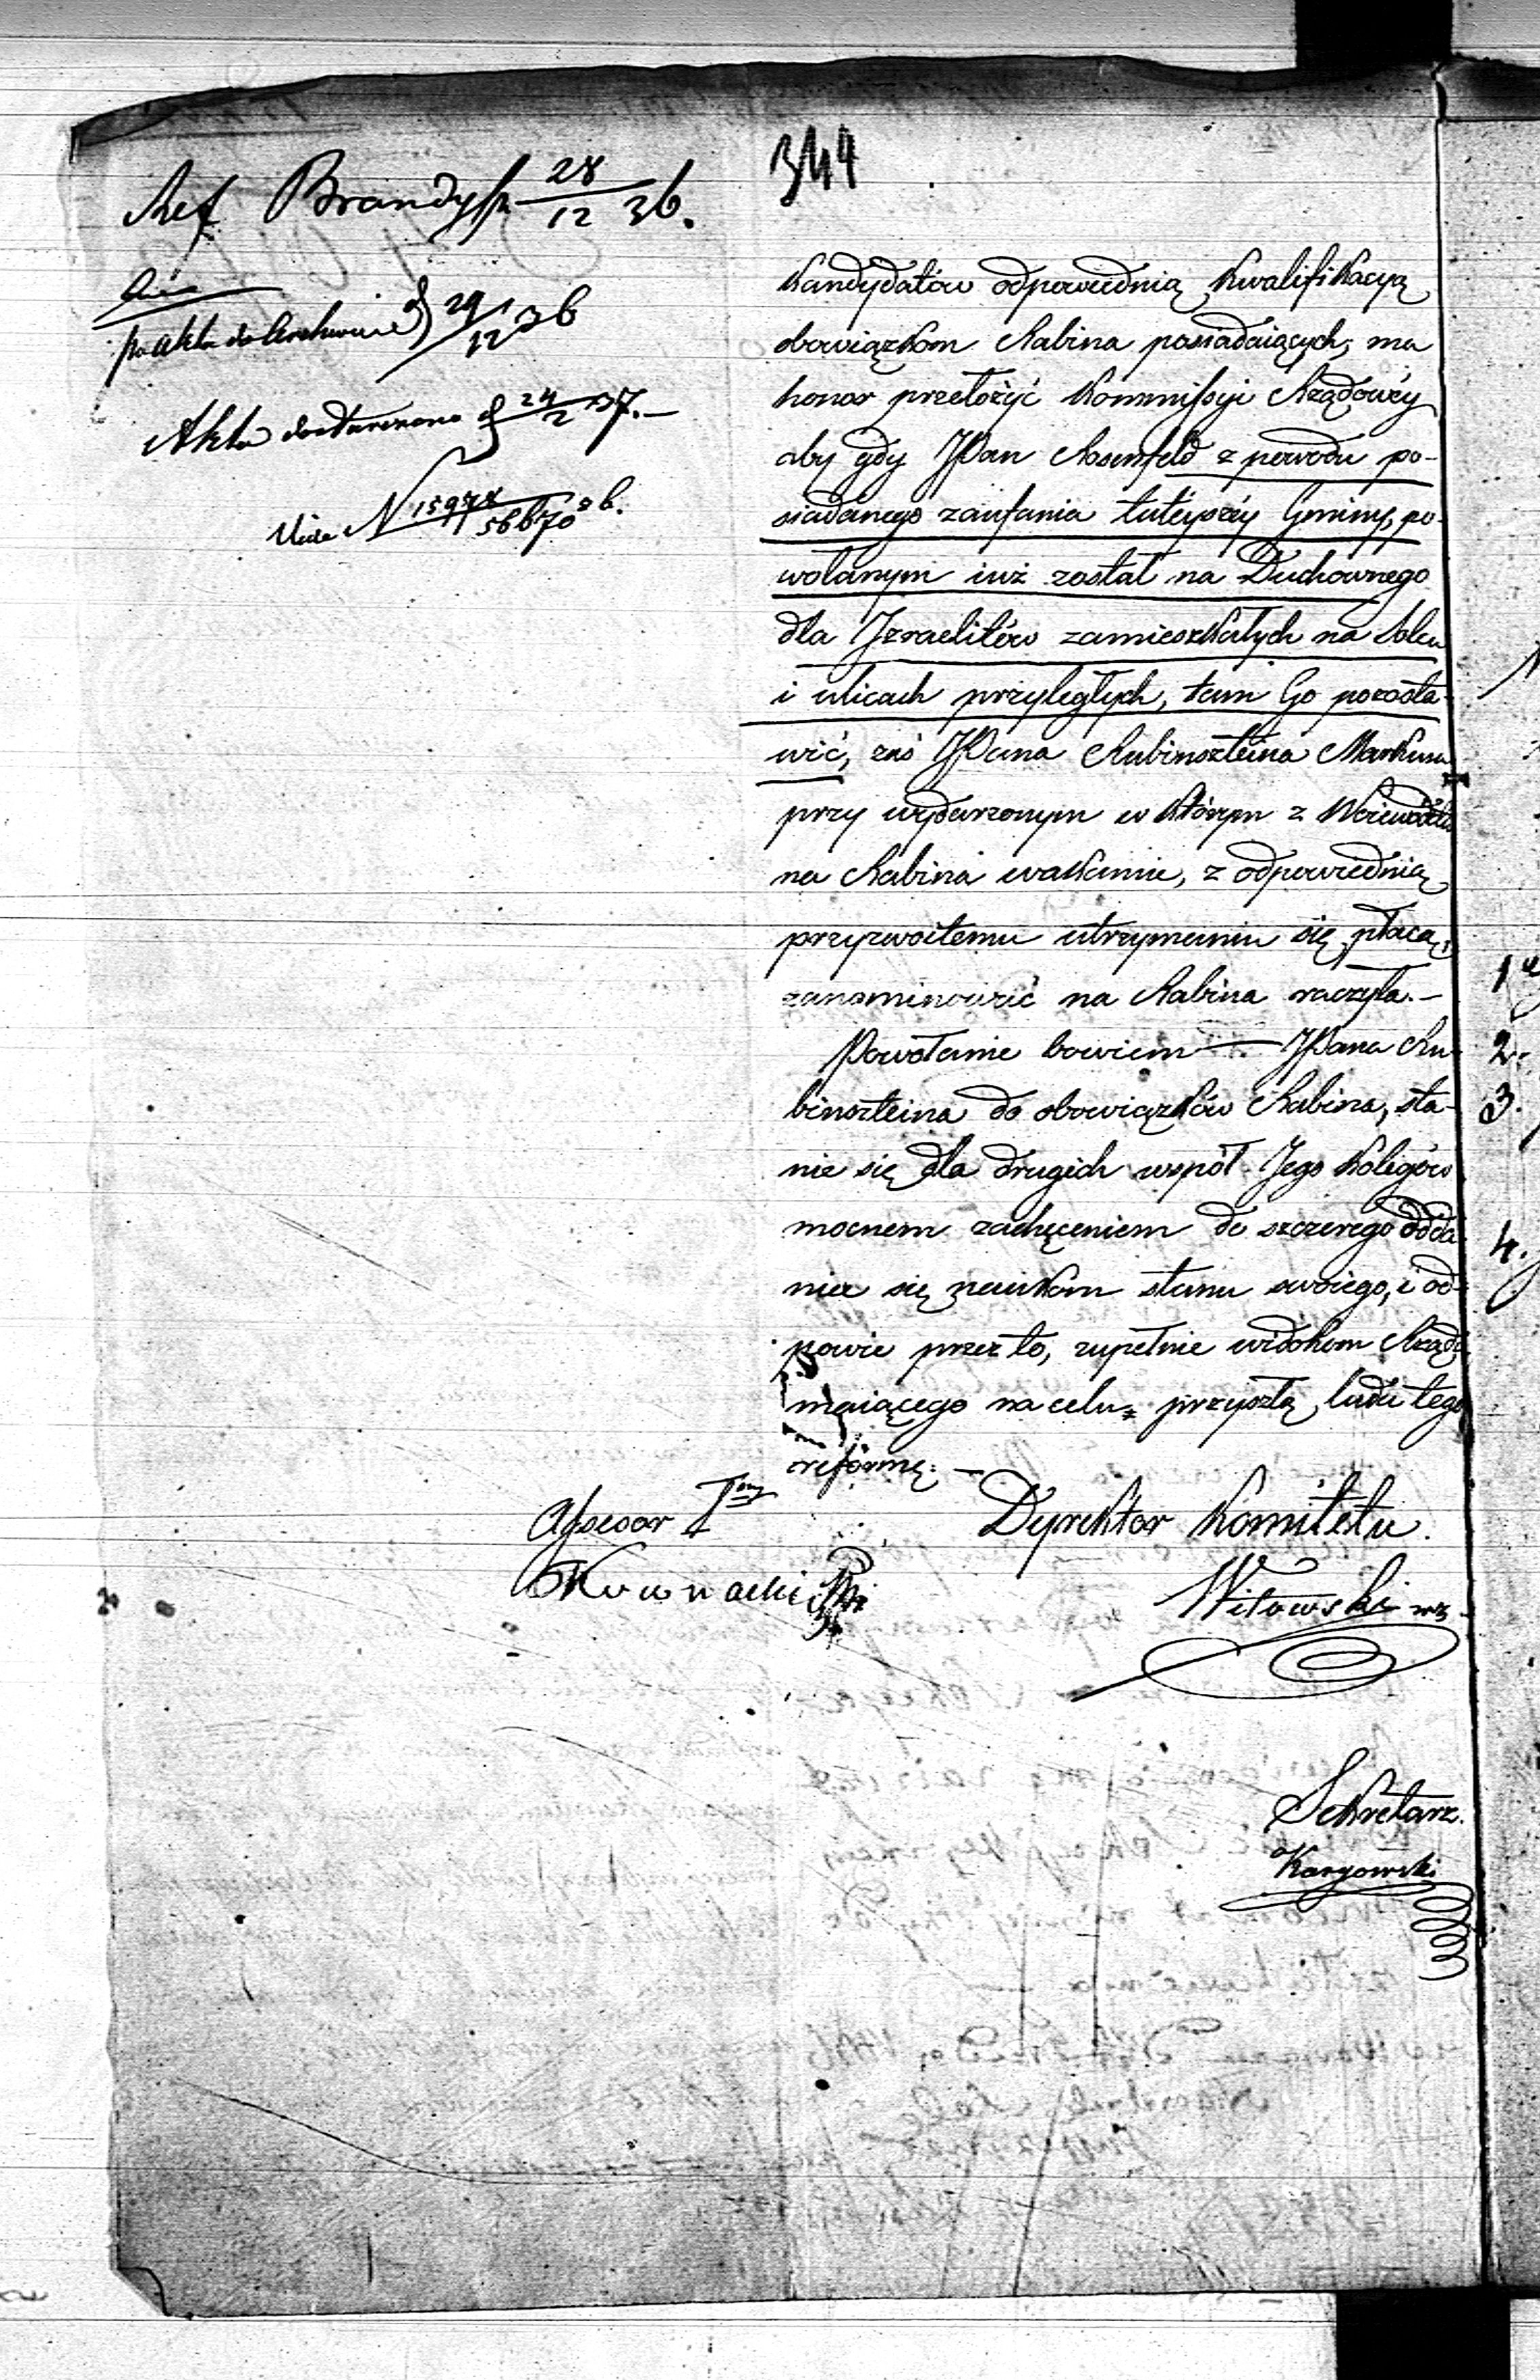 344
Ref Brandysz 28/12 36.
po akta do Archiwum 29/12 36
Akta dostarczono 24/2 37. —
Vide N 15978/56670 36.
Kandydatów odpowiednią kwalifikacyą
obowiązkom Rabina posiadaiących, ma
honor przełożyć Kommissyi Rządowéy
aby gdy JPan Rosenfeld z powodu po-
siadanego zaufania tuteyszéy Gminy, po-
wołanym iuż został na Duchownego
dla Izraelitów zamieszkałych na Solcu
i ulicach przyległych, tam Go pozosta-
wić, zaś JPana Rubinszteina Markusa
przy wydarzonym w którym z Woiewództw
na Rabina wakansie, z odpowiednią
przyzwoitemu utrzymaniu się płacą,
zanominować na Rabina raczyła. —
Powołanie bowiem — JPana Ru-
binszteina do obowiązków Rabina, sta-
nie się dla drugich współ Jego Kolegów
mocnem zachęceniem do szczerego odda-
nia się naukom stanu swoiego, i od-
powie przez to, zupełnie widokom Rządu
maiącego na celu przyszłą ludu tego
reformę. —
Assessor Iszy
Dyrektor Komitetu.
Witowski
Sekretarz.